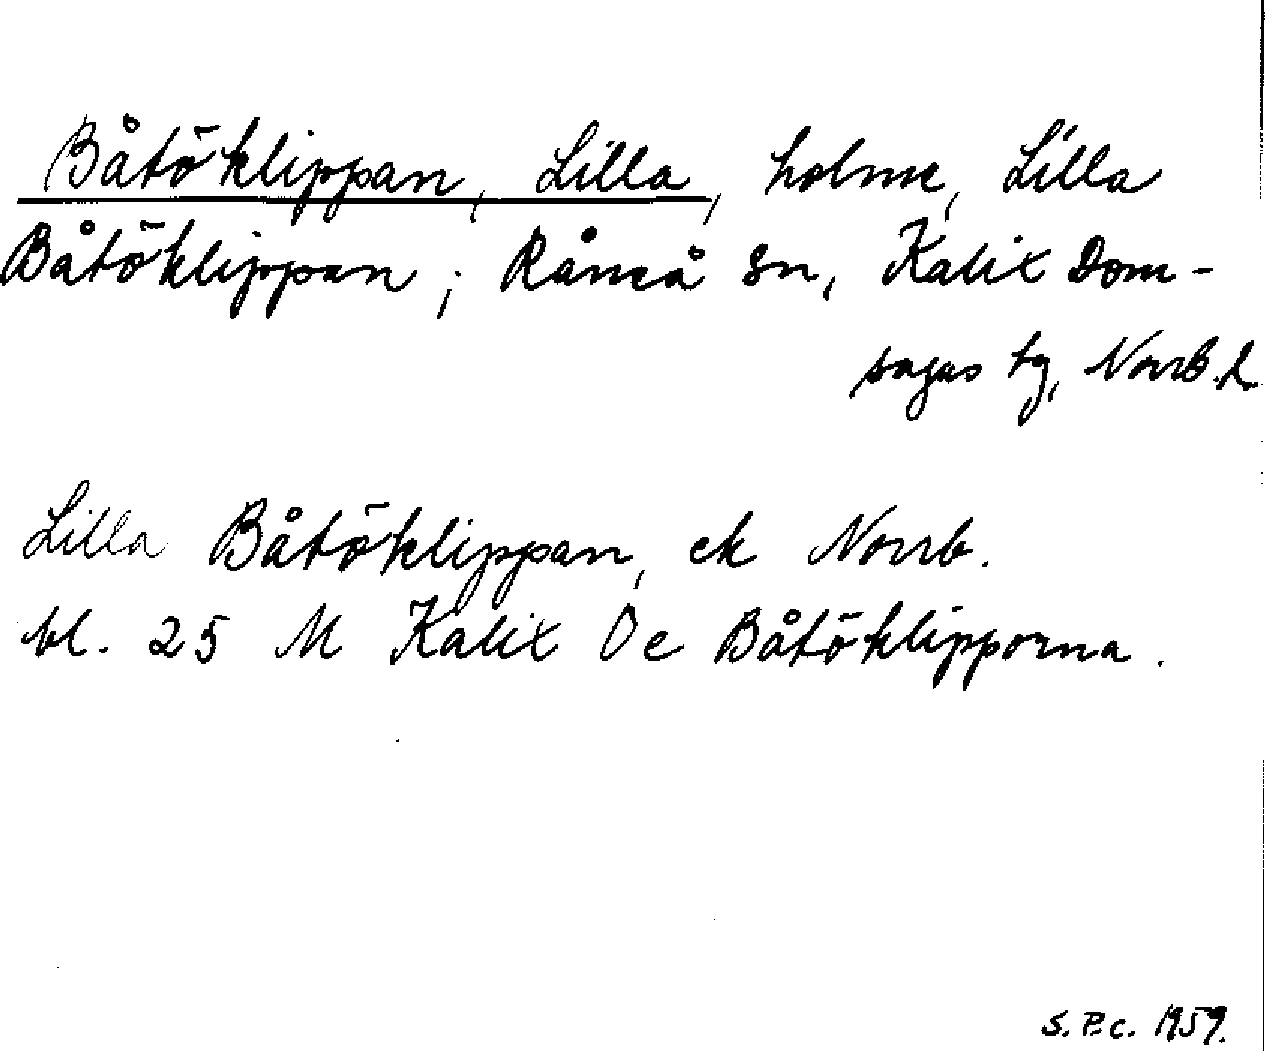 Båtöklippan, Lilla, holme, Lilla
Båtöklippan; Råneå Sn, Kalix Dom-
sagas tg, Norrb. L
Lilla Båtöklippan, ek Norrb.
bl. 25 M Kalix Oe Båtöklipporna.
S. P.c. 1959.